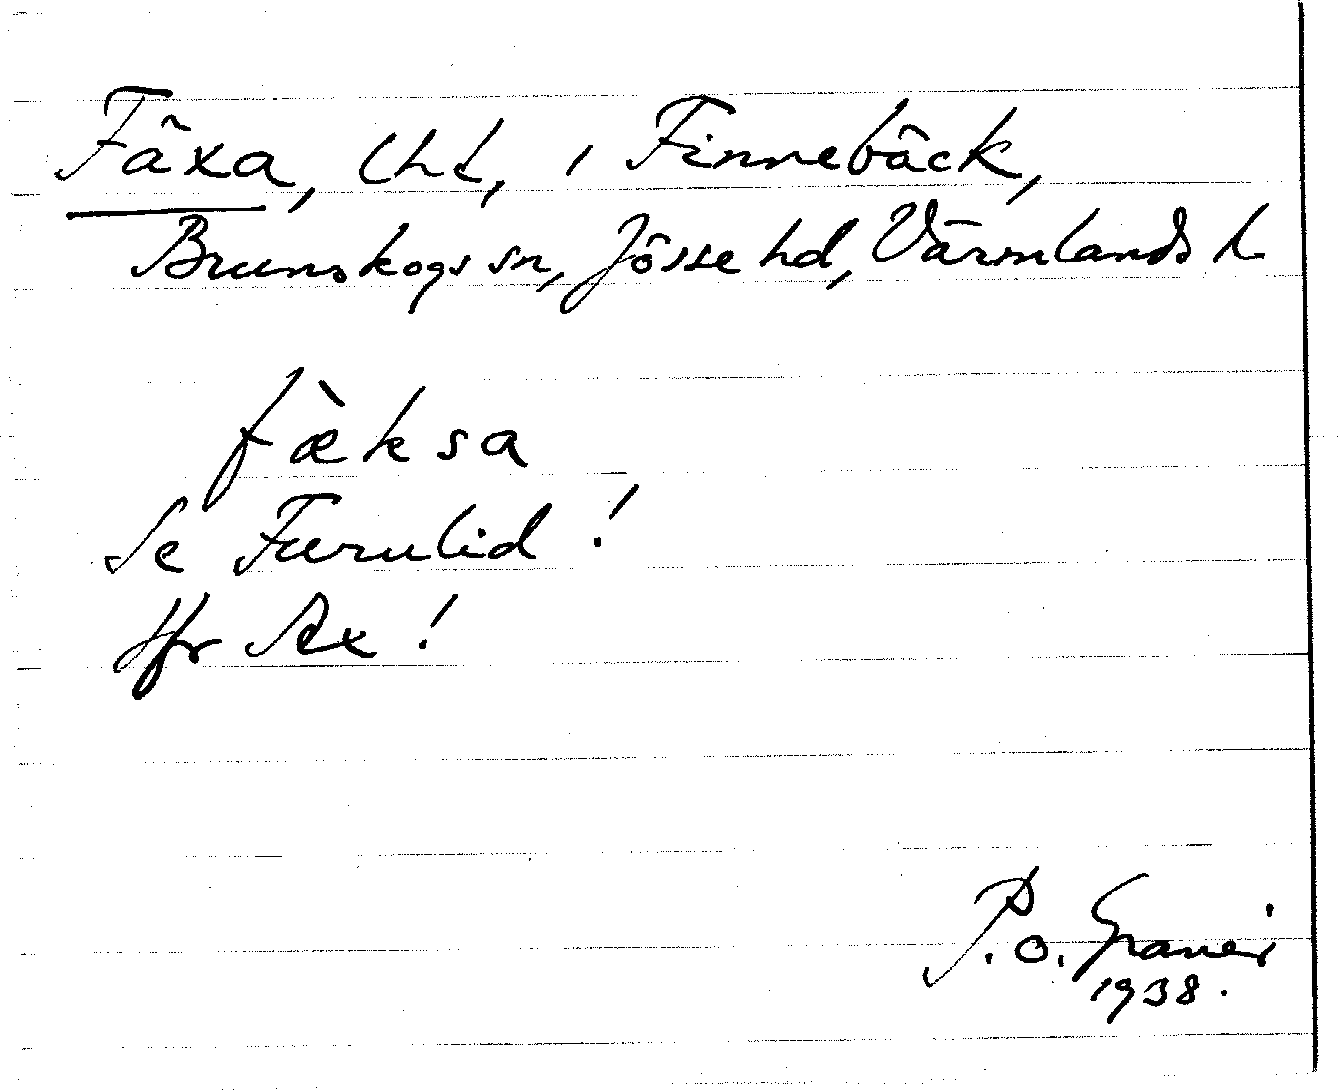 Fäxa, lht, i Finnebäck,
Brunskogs sn, Jösse hd, Värmlands l.
fæ̀ksa
Se Furulid!
Jfr Ax!
P. O. Granér
1938.